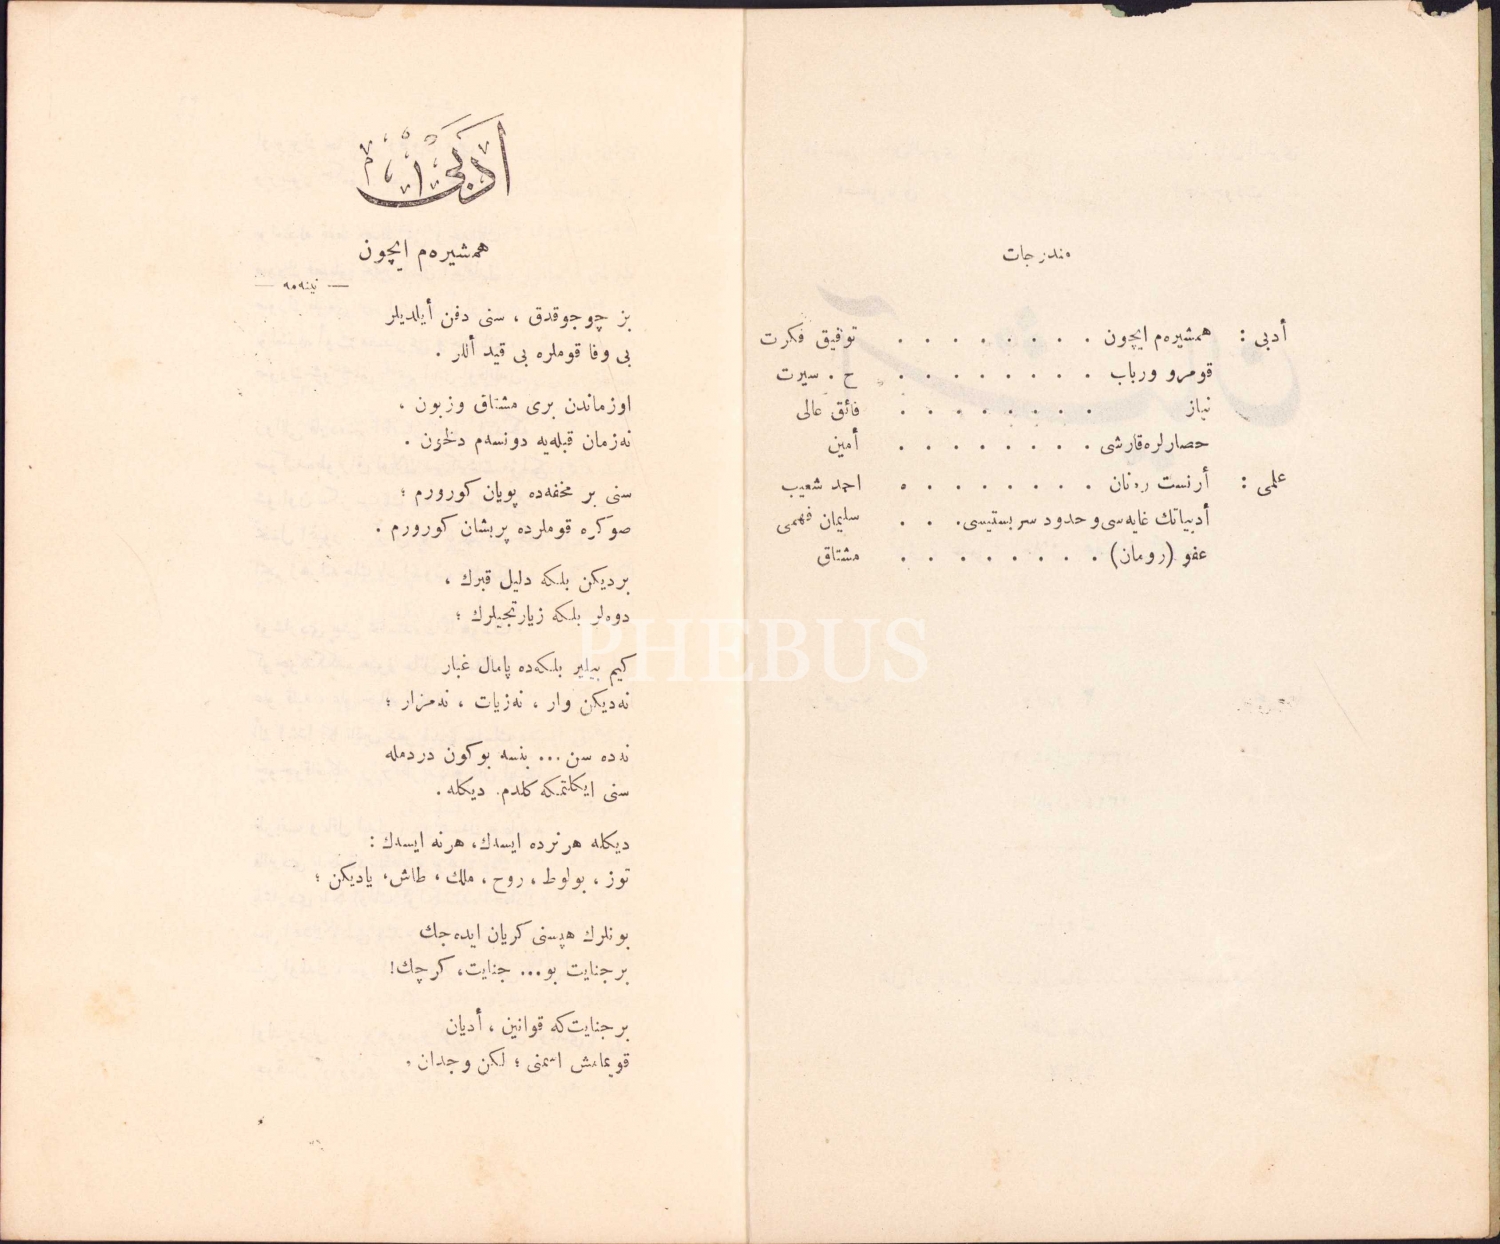 مندرجات
أدبی : همشيره‌م ايچون . . . . . . . . توفيق فكرت
قومرو ورباب . . . . . . . . ح . سيرت
نياز . . . . . . . . فائق عالی
حصارلره قارشی . . . . . . . . أمين
علمی : أرنست ره‌نان . . . . . . . ه احمد شعيب
أدبياتك غايه‌سی و حدود سربستيسی . . . سليمان فهمی
عفو (رومان) . . . . . . . . مشتاق
أدبيات
همشيره‌م ايچون
— نينه‌مه —
بز چوجوقدق ، سنی دفن أيلديلر
بی وفا قوملره بی قيد أللر .
اوزماندن بری مشتاق وزبون ،
نه‌زمان قبله‌يه دونسه‌م دلخون .
سنی بر محفه‌ده پويان كورورم ؛
صوكره قوملرده پريشان كورورم .
برديكن بلكه دليل قبرك ،
دوه‌لر بلكه زيارتجيلرك ؛
كيم بيلير بلكه‌ده پامال غبار
نه‌ديكن وار ، نه‌زيات ، نه‌مزار ؛
نه‌ده سن ... بنسه بوكون دردمله
سنی ايكلتمكه كلدم. ديكله .
ديكله هرنرده ايسه‌ك، هرنه ايسه‌ك :
توز ، بولوط ، روح ، ملك ، طاش، ياديكن ؛
بونلرك هپسنی كريان ايده‌جك
برجنايت بو... جنايت، كرچك!
برجنايت‌كه قوانين ، أديان
قويمامش اسمنی ؛ لكن وجدان .
PHEBUS